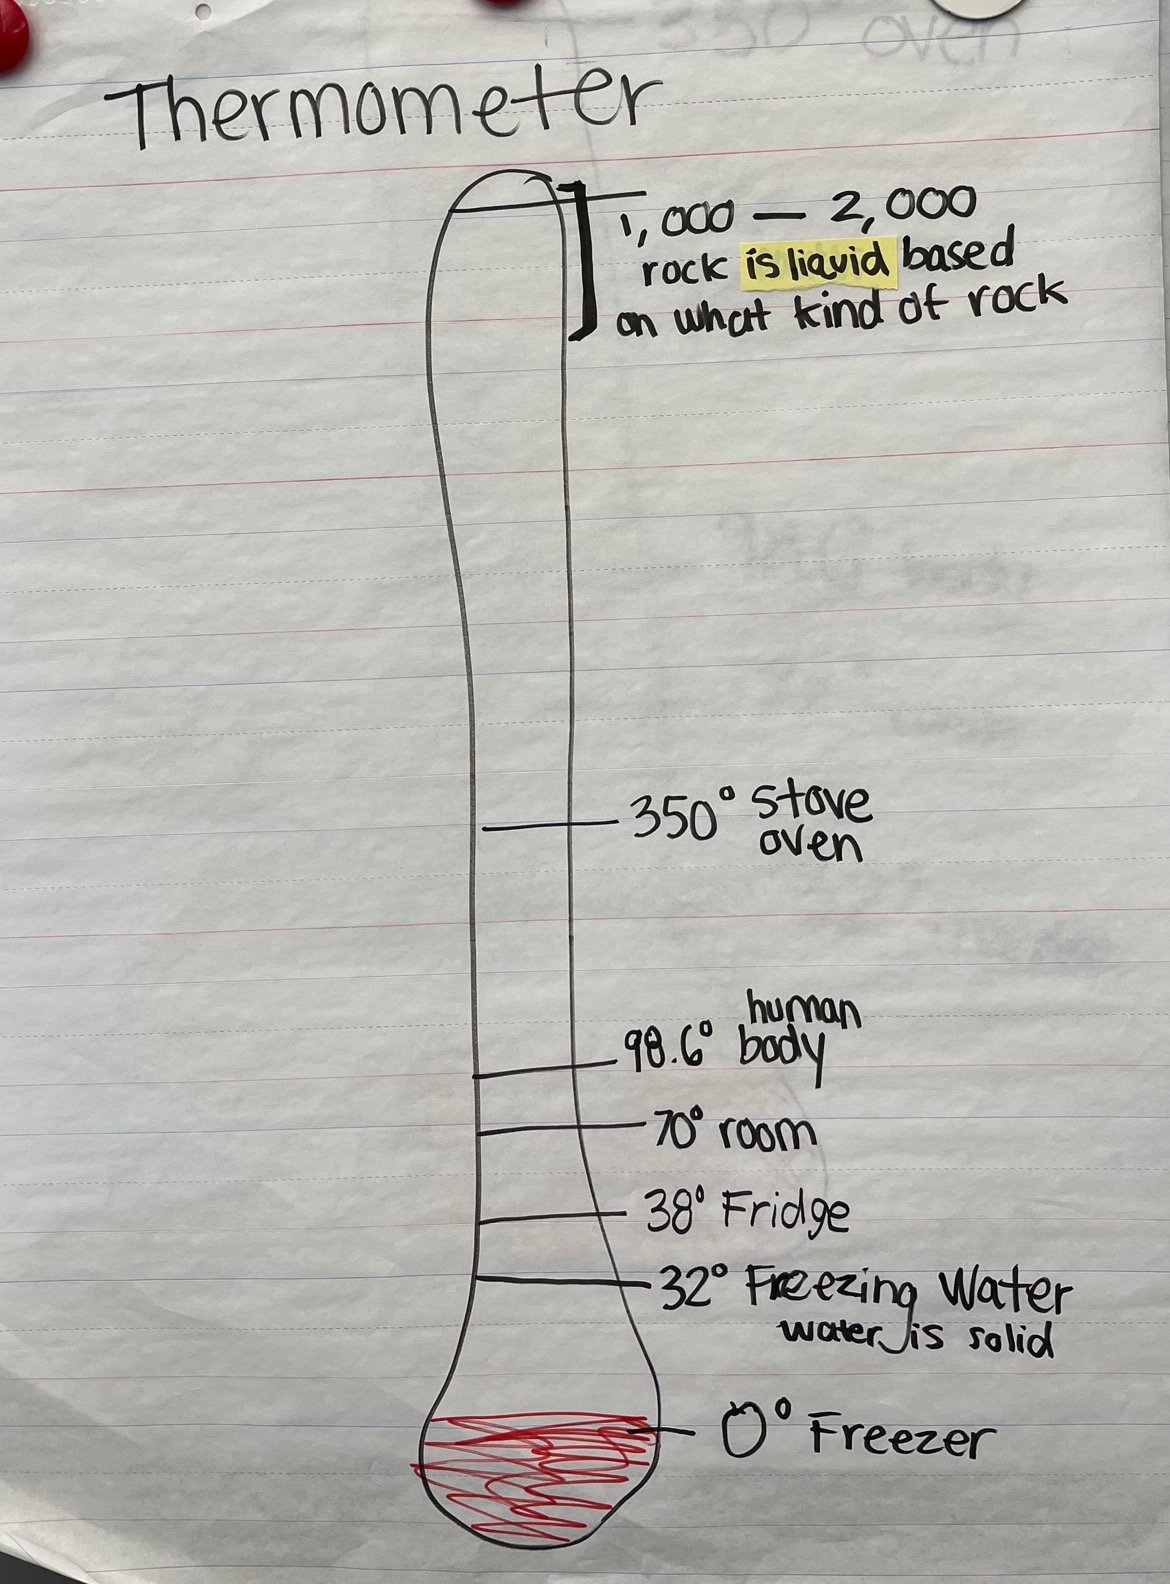 Thermometer
1,000 — 2,000
rock is liquid based
on what kind of rock
350° stove
oven
human
98.6° body
70° room
38° Fridge
32° Freezing Water
water is solid
0° Freezer